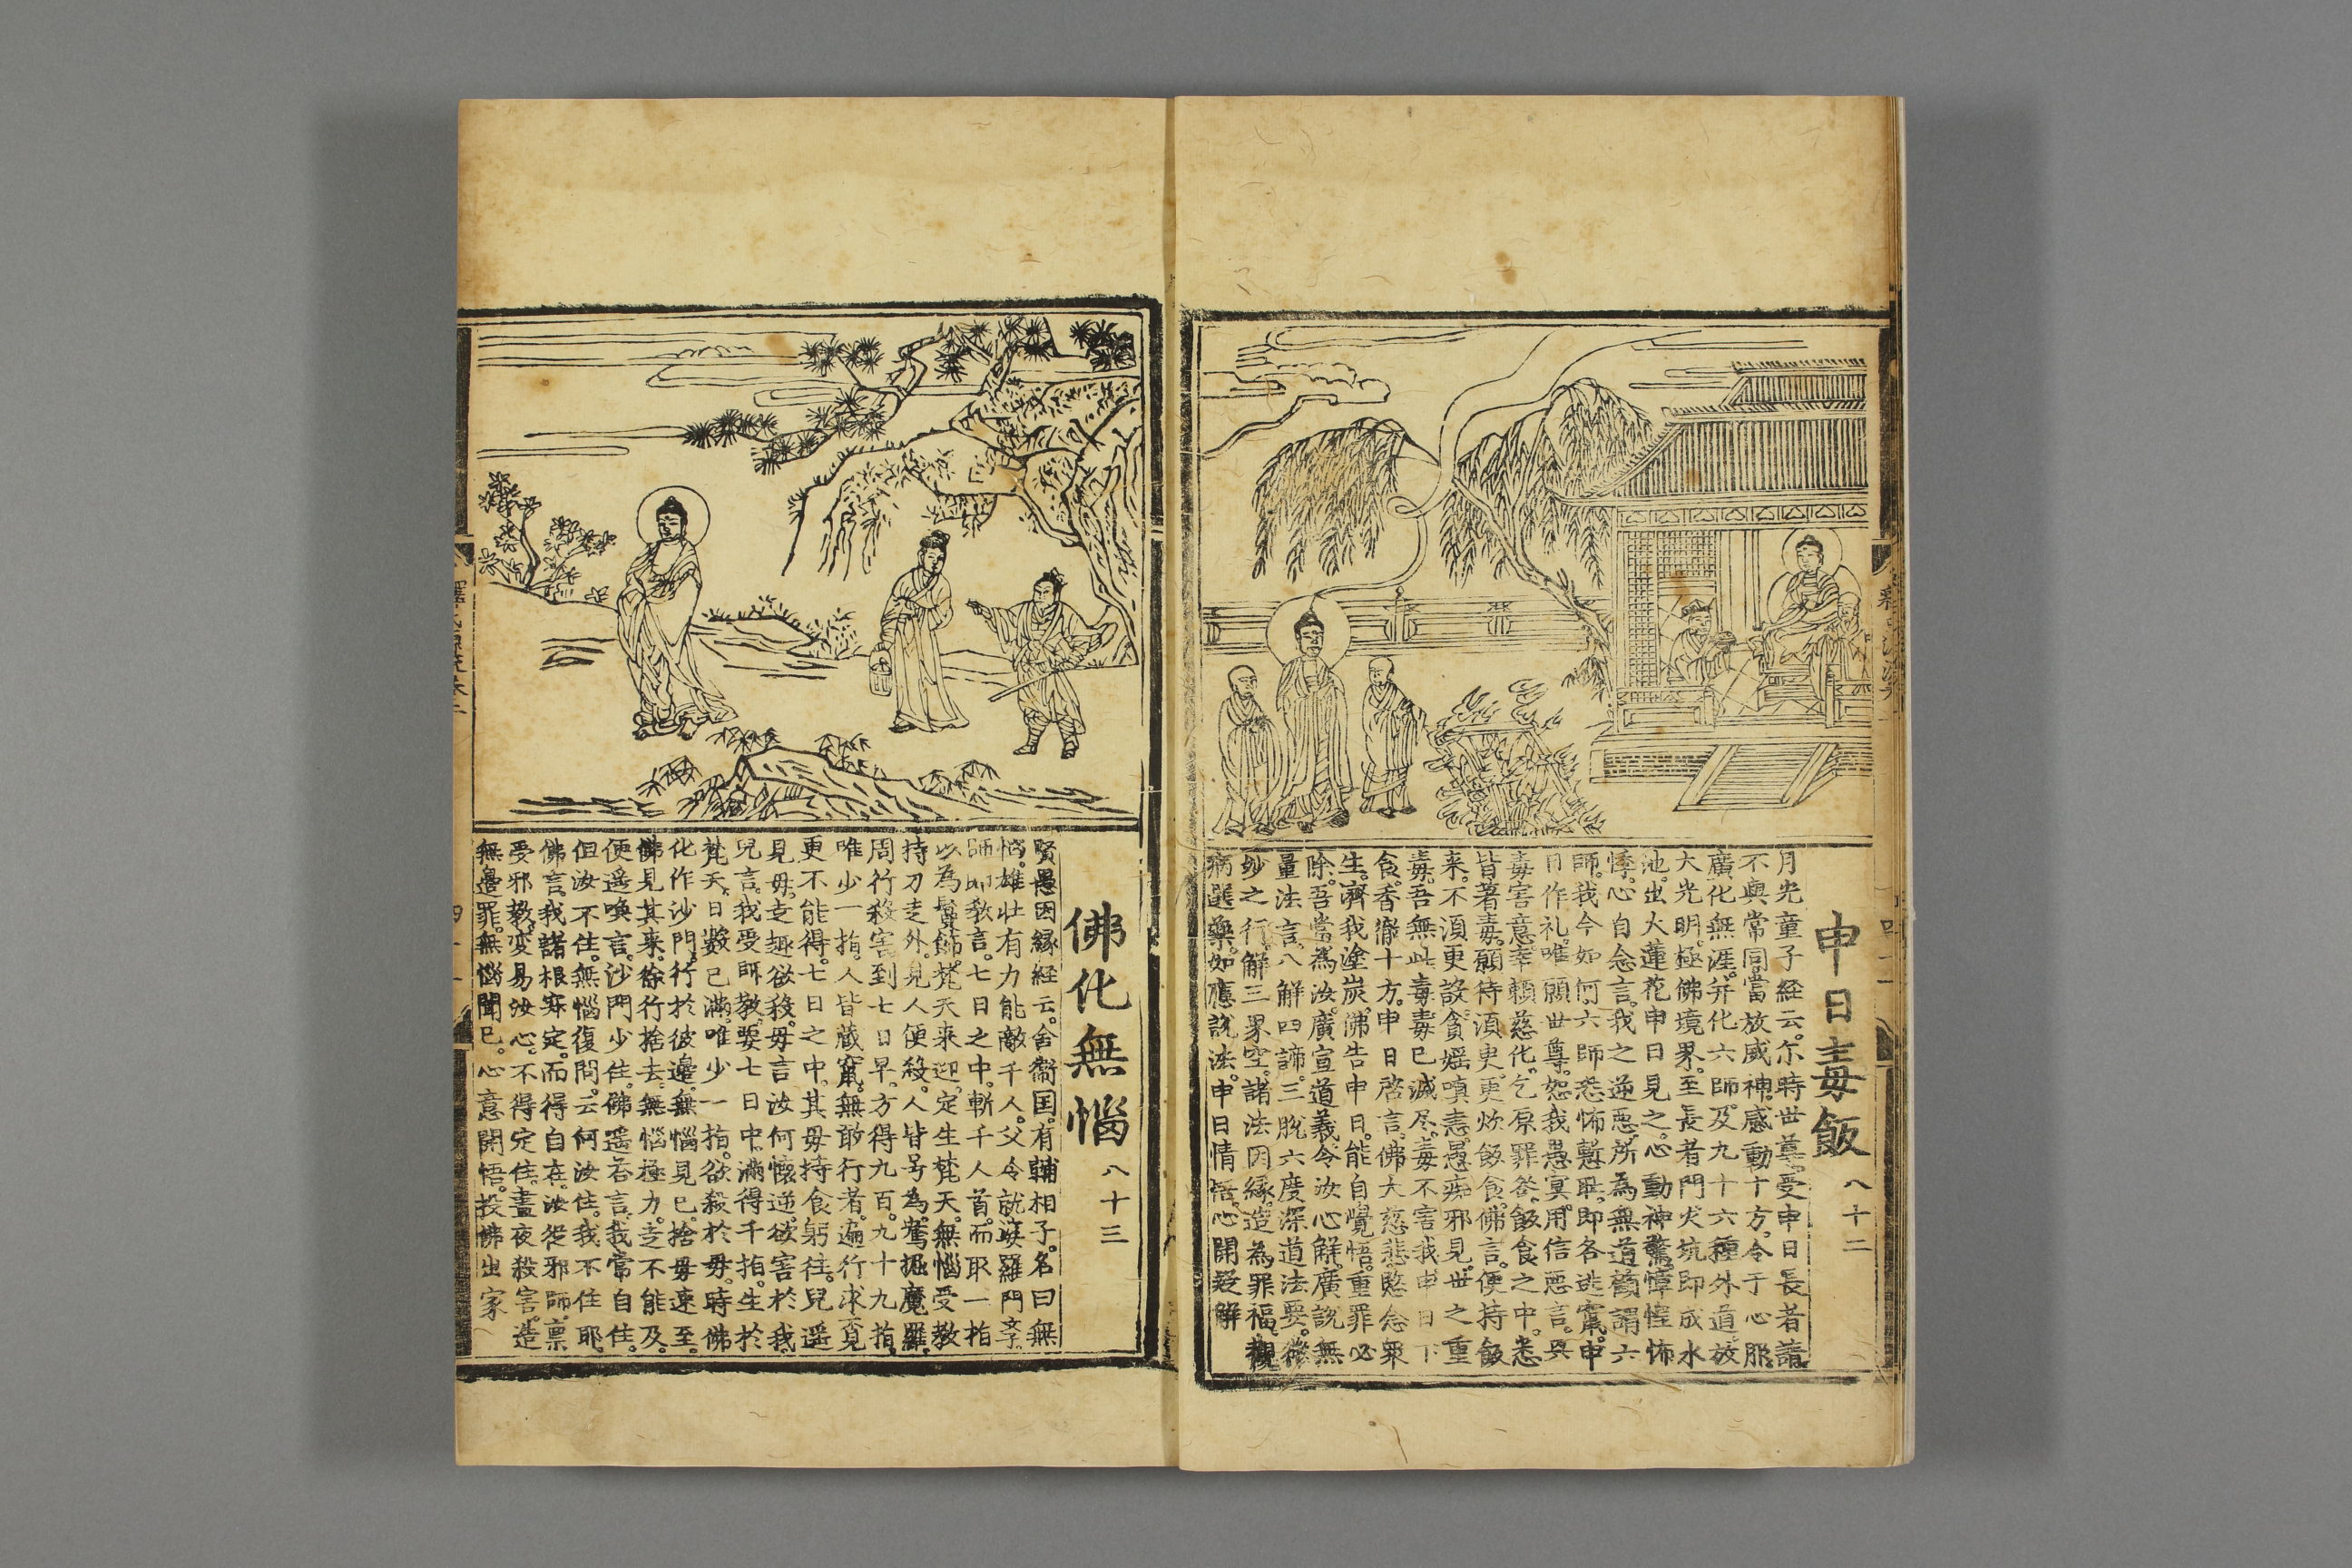 申日毒飯 八十二
月光童子経云尓時世尊受申日長者請
不與常同當放威神感動十方令于心服
廣化無涯并化六師及九十六種外道放
大光明極佛境界至長者門火坑即成水
池出大蓮花申日見之心動神驚惶怖
悸心自念言我之逆惡所為無道顧謂六
師我今如何六師恐怖慙耻即各逃竄申
日作礼唯願世尊恕我愚冥用信惡言興
毒害意幸頼慈化乞原罪咎飯食之中悉
皆著毒願待須臾更炊飯食佛言便持飯
来不須更設貪婬嗔恚愚痴邪見世之重
毒吾無此毒毒已滅尽毒不害我申日下
食香徹十方申日啓言佛大慈悲愍念衆
生濟我塗炭佛告申日能自覺悟重罪必
除吾當為汝廣宣道義令汝心解廣說無
量法言八解四諦三脫六度深道法要微
妙之行解三界空諸法因縁造為罪福觀
病選藥如應說法申日情悟心開疑解
佛化無惱 八十三
賢愚因縁経云舍衞国有輔相子名曰無
惱雄壮有力能敵千人父令就婆羅門學
師即教言七日之中斬千人首而取一指
以為鬘飾梵天来迎定生梵天無惱受教
持刀走外見人便殺人皆号為鴦掘魔羅
周行殺害到七日早方得九百九十九指
唯少一指人皆蔵竄無敢行者遍行求覓
更不能得七日之中其母持食躬往兒遥
見母走趣欲殺母言汝何懷逆欲害於我
兒言我受師教要七日中滿得千指生於
梵天日數已滿唯少一指欲殺於母時佛
化作沙門行於彼邊無惱見已捨母速至
佛見其来徐行捨去無惱極力走不能及
便遥喚言沙門少住佛遥吞言我常自住
但汝不住無惱復問云何汝住我不住耶
佛言我諸根寂定而得自在汝從邪師稟
受邪教変易汝心不得定住晝夜殺害造
無邊罪無惱聞已心意開悟投佛出家